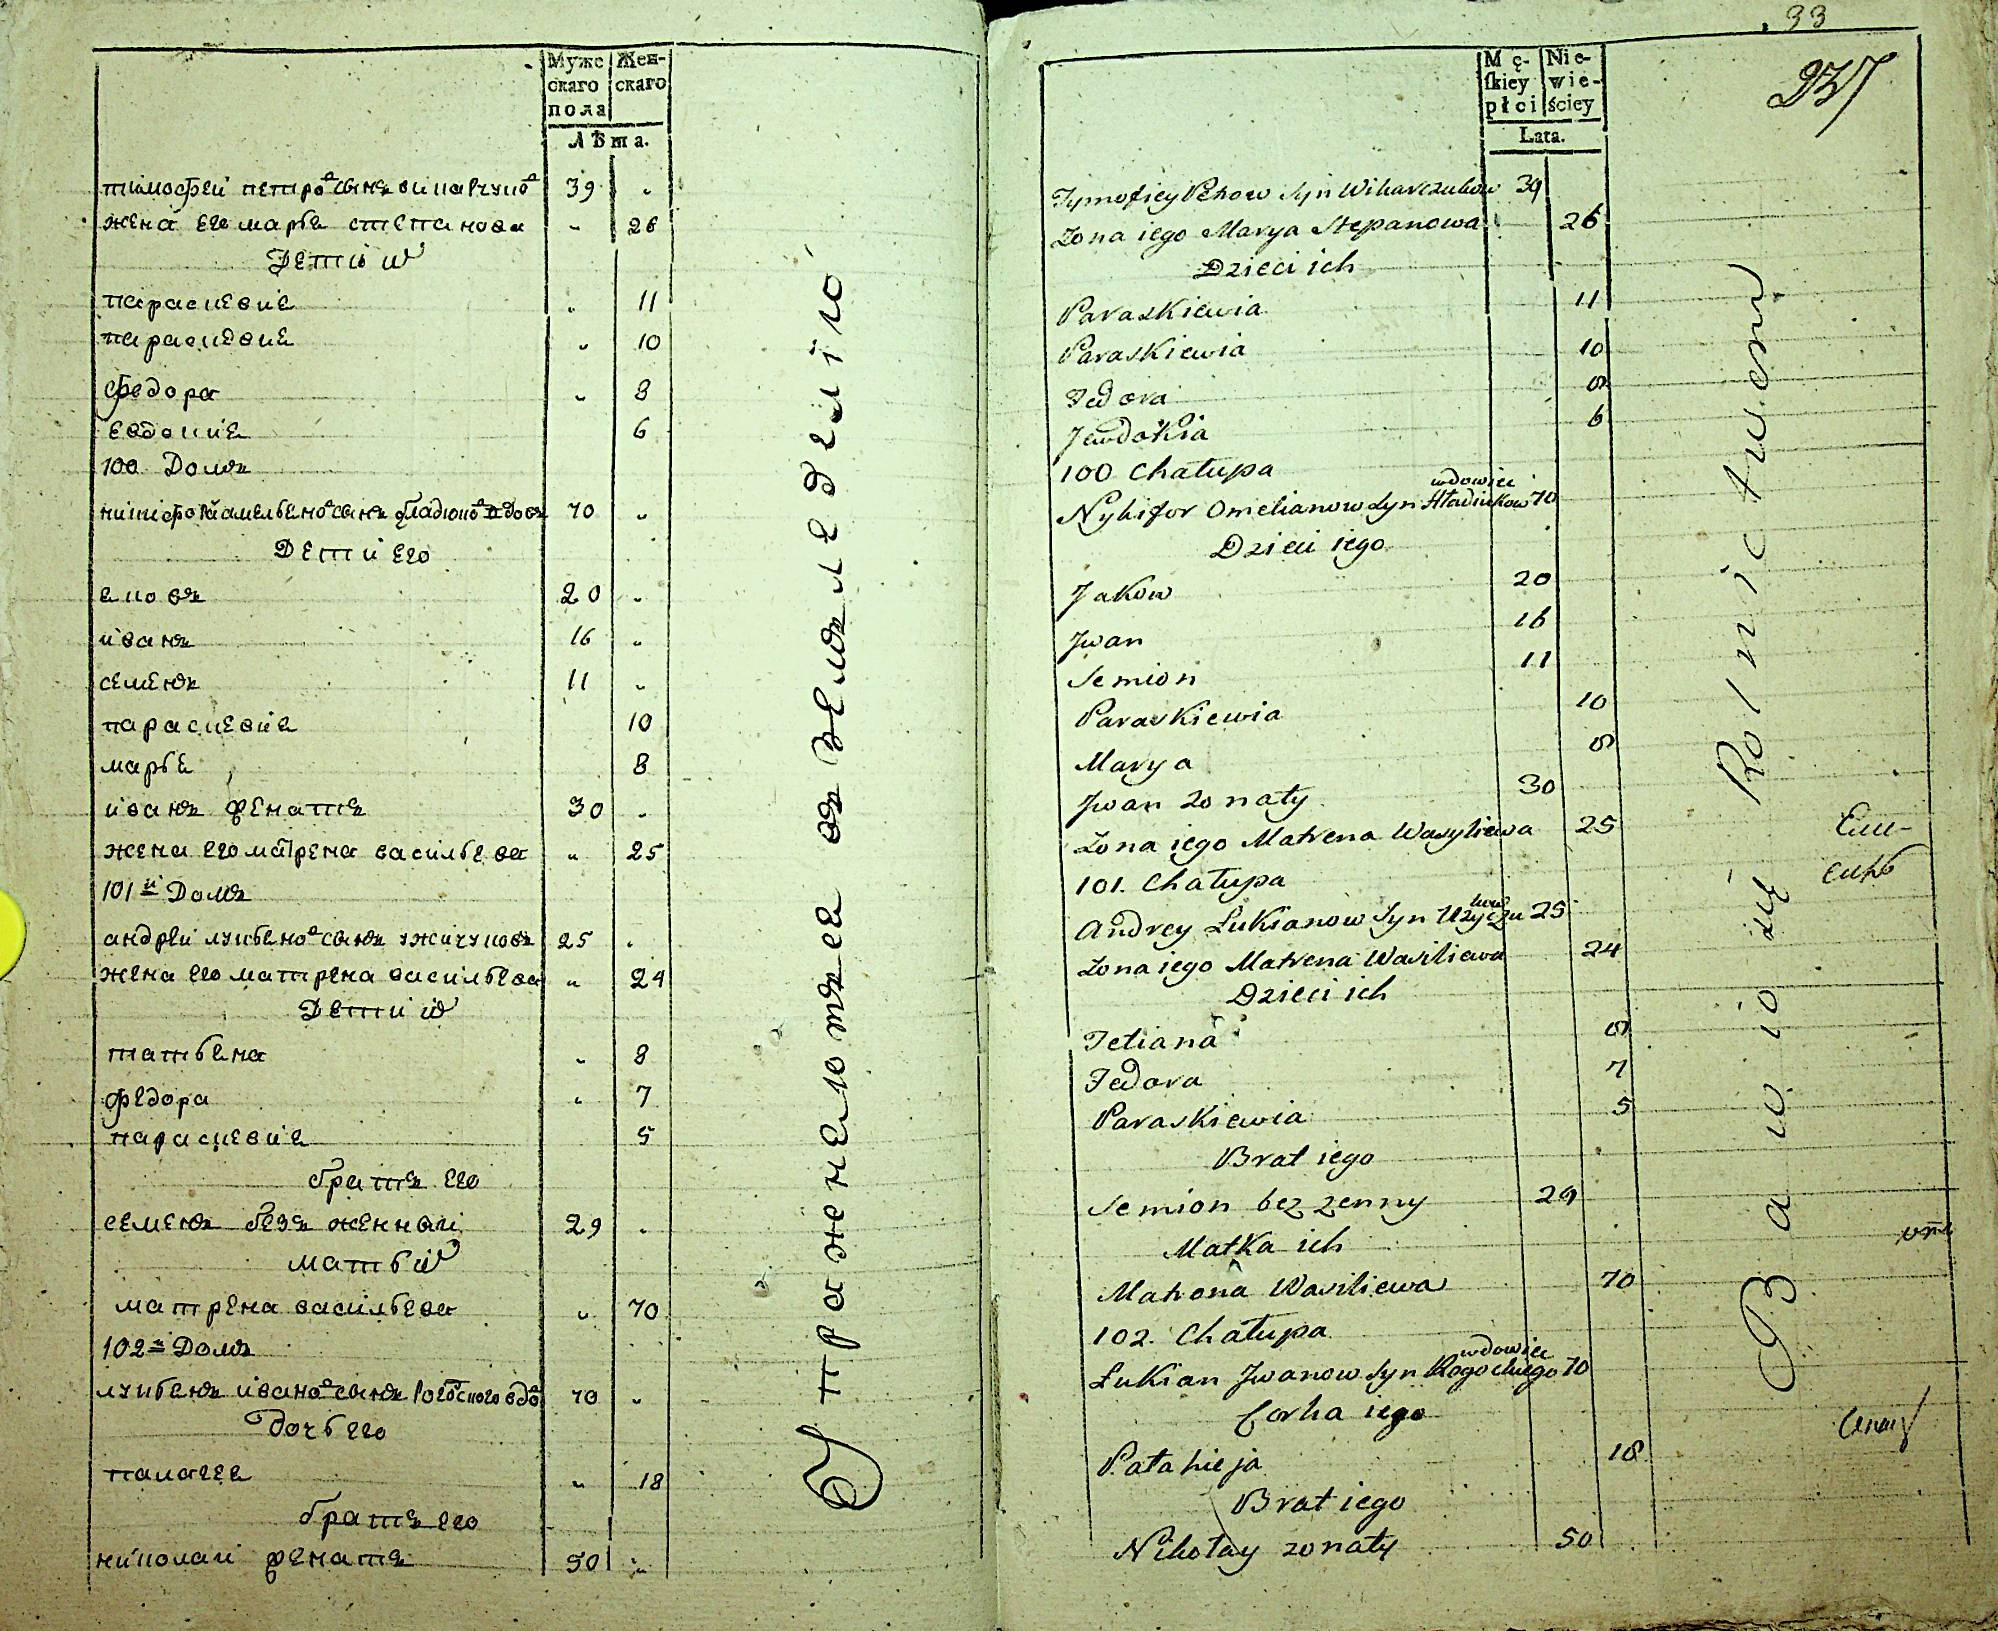 Муже скаго пола
Жен- скаго
Лѣта.
тимофей петровъ сынъ викарчуковъ 39 "
жена его марья степанова " 26
Дети их
параскевия " 11
параскевия " 10
федора " 8
евдокия 6
100 Домъ
никифоръ амельяновъ сынъ гладюковъ вдовъ 70 "
Дети его
яковъ 20 "
иванъ 16 "
семенъ 11 "
параскевия 10
марья 8
иванъ женатъ 30 "
жена его матрена васильева " 25
101й Домъ
андрей лукьяновъ сынъ ужичуковъ 25 "
жена его матрена васильева " 24
Дети их
татьяна " 8
федора " 7
параскевия 5
братъ его
семенъ безъ женный 29 "
мать их
матрена васильева " 70
102й Домъ
лукьянъ ивановъ сынъ рогоского вдовъ 70 "
дочь его
палагея " 18
братъ его
николай женатъ 50 "
Упражняются въ земледелію
33
237
Mę- skiey płci
Nie- wie- ściey
Lata.
Tymofiey Petrow Syn Wikarczukow 39
Zona iego Marya Stepanowa 26
Dzieci ich
Paraskiewia 11
Paraskiewia 10
Fedora 8
Jewdokia 6
100 Chałupa
wdowiec
Nykifor Omelianow Syn Hładiukow 70
Dzieci iego
Jakow 20
Jwan 16
Semion 11
Paraskiewia 10
Marya 8
Jwan zonaty 30
Zona iego Matrena Wasyliewa 25
101. Chałupa
kow
Andrey Lukianow Syn Uzyczu 25
Zona iego Matrena Wasiliewa 24
Dzieci ich
Tetiana 8
Fedora 7
Paraskiewia 5
Brat iego
Semion bez zenny 29
Matka ich
Matrona Wasiliewa 70
102. Chałupa
wdowiec
Lukian Jwanow Syn Rogockiego 70
Corka iego
Pałahieja 18
Brat iego
Nikołay zonaty 50
Bawią się Rolnictwem